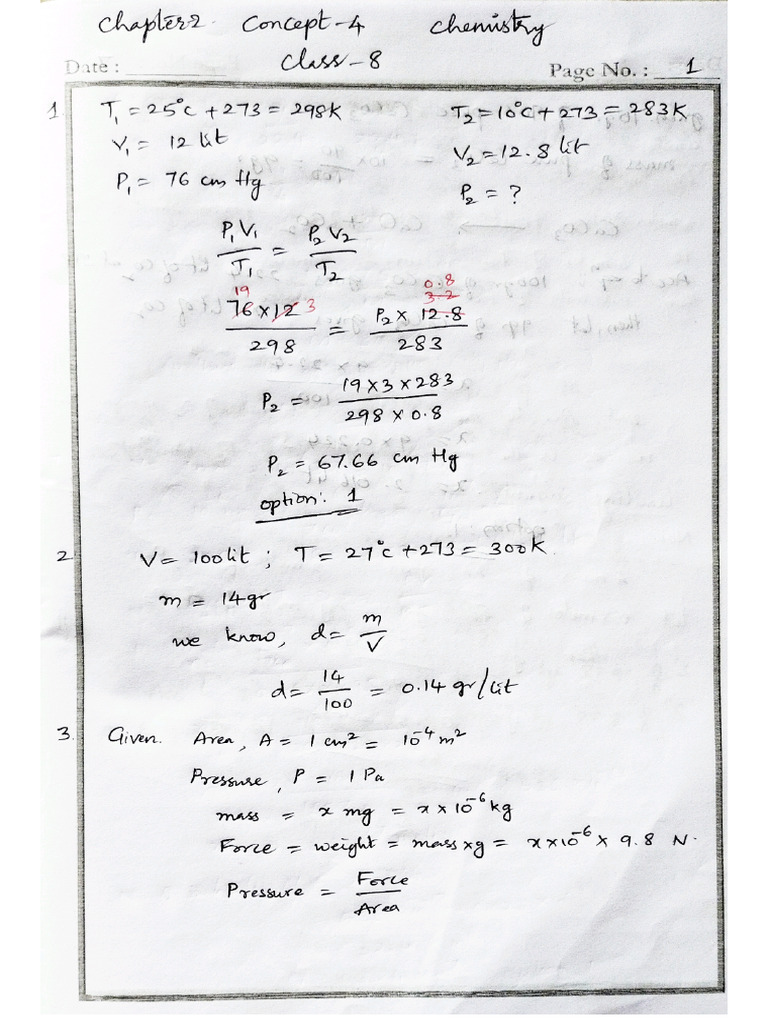 Chapter 2. Concept-4 Chemistry
Class-8
Date : Page No. : 1
1. T₁ = 25°C + 273 = 298K T₂ = 10°C + 273 = 283K
V₁ = 12 lit V₂ = 12.8 lit
P₁ = 76 cm Hg P₂ = ?
P₁V₁/T₁ = P₂V₂/T₂
19 0.8
3.2
76 × 12 3 / 298 = P₂ × 12.8 / 283
P₂ = 19 × 3 × 283 / 298 × 0.8
P₂ = 67.66 cm Hg
option: 1
2. V = 100 lit ; T = 27°C + 273 = 300K.
m = 14gr
we know, d = m/V
d = 14/100 = 0.14 gr/lit
3. Given. Area, A = 1 cm² = 10⁻⁴ m²
Pressure, P = 1 Pa
mass = x mg = x × 10⁻⁶ kg
Force = weight = mass × g = x × 10⁻⁶ × 9.8 N.
Pressure = Force/Area